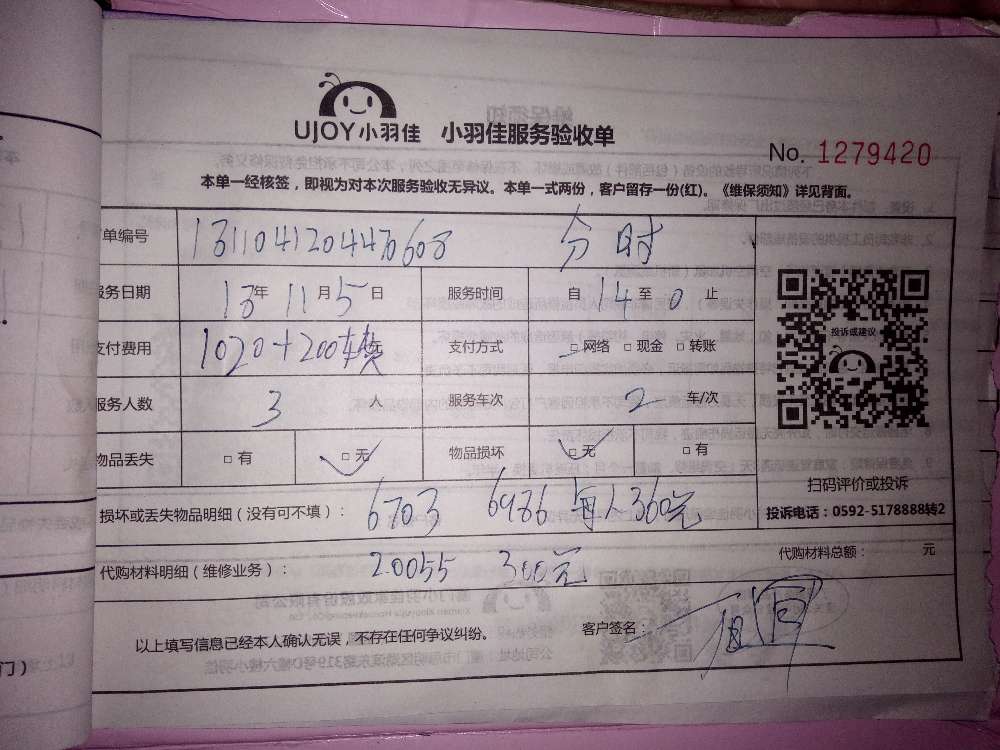 UJOY小羽佳 小羽佳服务验收单
No. 1279420
本单一经核签，即视为对本次服务验收无异议。本单一式两份，客户留存一份(红)。《维保须知》详见背面。
单编号 分时
服务日期 年 11月5日 服务时间 自14至0止
支付费用 1020+200车费元 支付方式 □网络 □现金 □转账
投诉或建议
服务人数 3人 服务车次 2车/次
物品丢失 □有 □无 物品损坏 □无 □有
扫码评价或投诉
损坏或丢失物品明细（没有可不填）： 6703 6986 每人360元
投诉电话：0592-5178888转2
代购材料明细（维修业务）： 20055 300元
代购材料总额： 元
以上填写信息已经本人确认无误，不存在任何争议纠纷。
客户签名：
门）